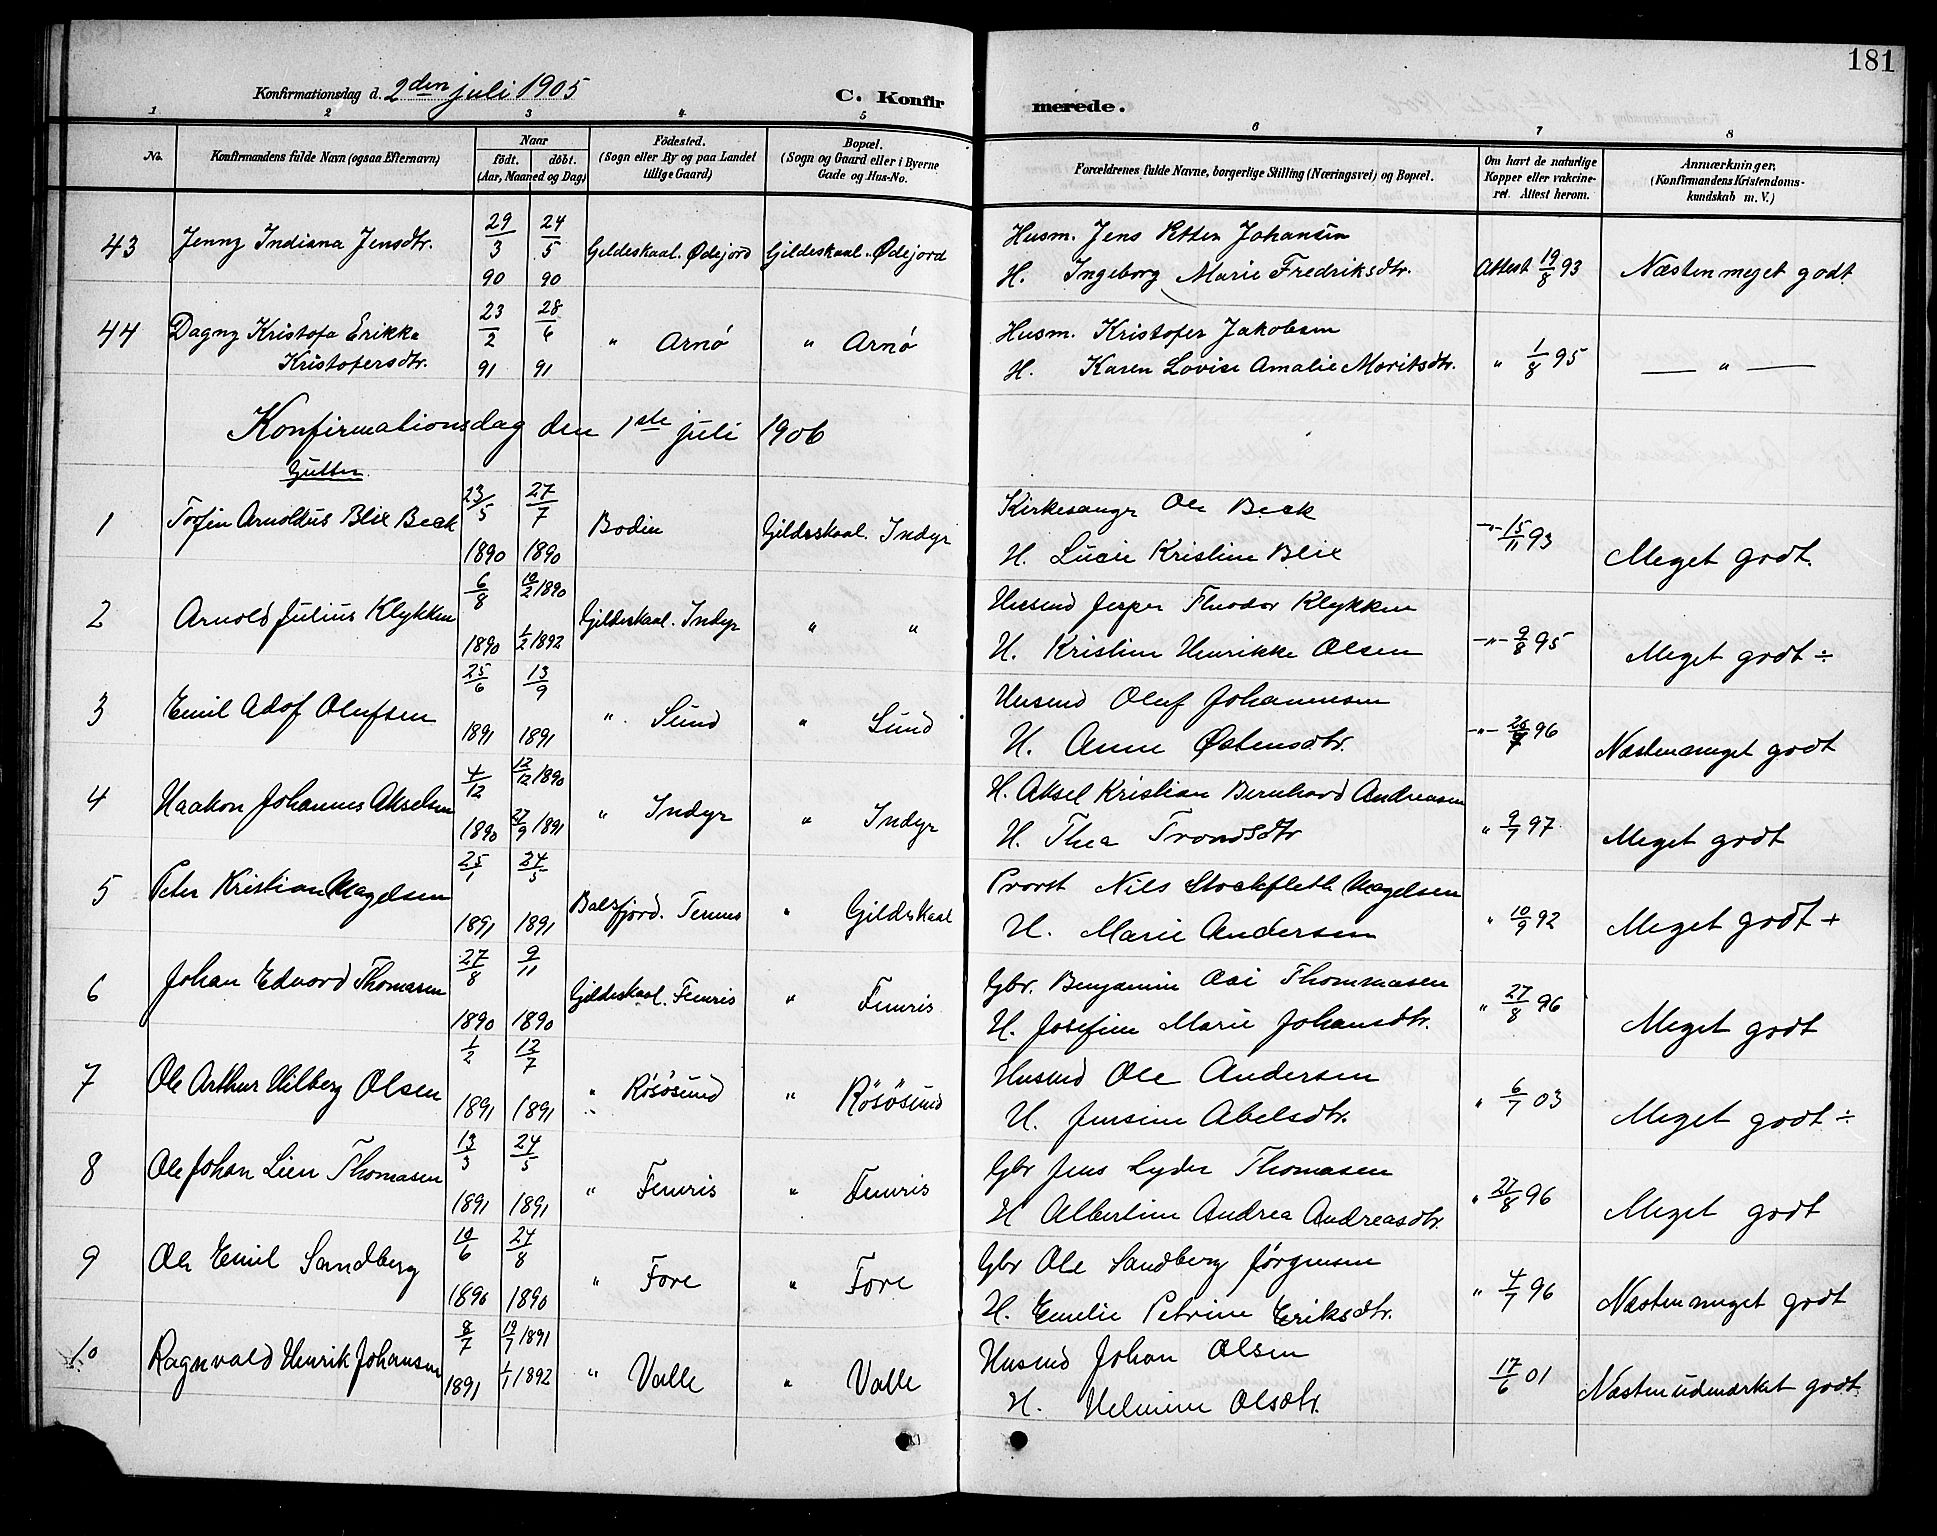 181
Konfirmationsdag d. 2den juli 1905
C. Konfirmerede.
1 2 3 4 5 6 7 8
No. Konfirmandens fulde Navn (ogsaa Efternavn) Naar født. døbt. (Aar, Maaned og Dag) Fødested. (Sogn eller By og paa Landet tillige Gaard) Bopæl. (Sogn og Gaard eller i Byerne Gade og Hus-No. Forældrenes fulde Navne, borgerlige Stilling (Næringsvei) og Bopæl. Om havt de naturlige Kopper eller vakcineret. Attest herom. Anmærkninger, (Konfirmandens Kristendomskundskab m. V.)
43 Jenny Indiana Jensdtr. 29/3 90 24/5 90 Gildeskaal. Ødejord Gildeskaal. Ødejord Husm. Jens Petter Johansen
H. Ingeborg Marie Fredriksdtr. Attest 19/8 93 Næsten meget godt
44 Dagny Kristofa Erikka
Kristofersdtr. 23/2 91 28/6 91 " Arnø " Arnø Husm. Kristofer Jakobsen
H. Karen Lovise Amalie Moritsdtr. " 1/8 95 — " —
Konfirmationsdag den 1ste juli 1906
Gutter
1 Torfin Arnoldus Blix Beck 23/5 1890 27/7 1890 Bodin Gildeskaal. Indyr Kirkesanger Ole Beck
H. Lucie Kristine Blix -"- 15/11 93 Meget godt.
2 Arnold Julius Klykken 6/8 1890 10/2 1890 1/2 1892 Gildeskaal. Indyr " " Husmd Jesper Theodor Klykken
H. Kristine Henrikke Olsen -"- 9/8 95 Meget godt ÷
3 Emil Adof Olufsen 25/6 1891 13/9 1891 " Sund " Sund Husmd Oluf Johannesen
H. Anne Østensdtr. -"- 96 Næsten meget godt
4 Haakon Johannes Akselsen 4/12 1890 12/12 1890 27/9 1891 " Indyr " Indyr H. Aksel Kristian Bernhard Andreasen
H. Thea Trondsdtr " 9/7 97 Meget godt
5 Peter Kristian Nagelsen 25/1 1891 24/5 1891 Balsfjord. Tennes " Gildeskaal Provst Nils Stockfleth Nagelsen
H. Marie Andersen " 10/9 92 Meget godt +
6 Johan Edvard Thomasen 27/8 1890 9/11 1890 Gildeskaal. Fenris " Fenris Gbr. Benjamin Thommasen
H. Josefine Marie Johansdtr. " 27/8 96 Meget godt
7 Ole Arthur Hilberg Olsen 1/2 1891 12/7 1891 " Røsøsund " Røsøsund Husmd Ole Andersen
H. Jensine Abelsdtr. " 6/7 03 Meget godt ÷
8 Ole Johan Lien Thomasen 13/3 1891 24/5 1891 " Fenris " Fenris Gbr Jens Lyder Thomasen
H Albertine Andrea Andreasdtr. " 27/8 96 Meget godt
9 Ole Emil Sandberg 10/6 1890 24/8 1890 " Fore " Fore Gbr Ole Sandberg Jørgensen
H. Emelie Petrine Eriksdtr. " 4/7 96 Næsten meget godt
10 Ragnvald Henrik Johansen 8/7 1891 19/7 1891 1/1 1892 " Valle " Valle Husmd Johan Olsen
H. Helmine Olsdtr. 17/6 01 Næsten udmærket godt.